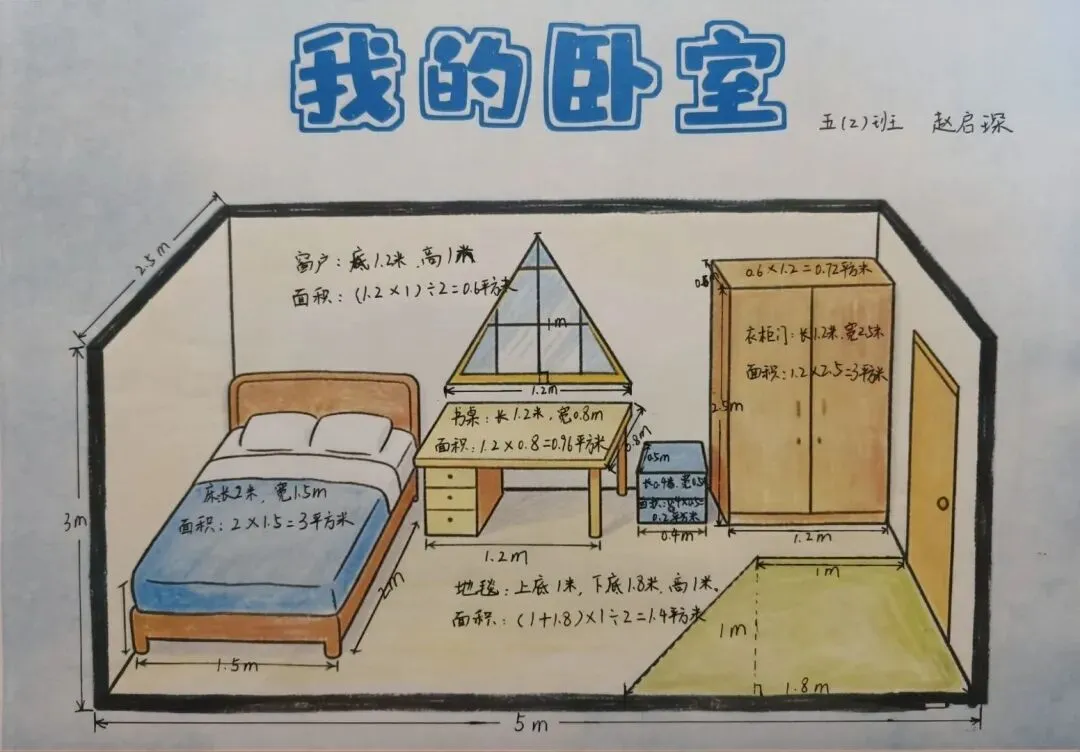 我的卧室
五(2)班 赵启琛
2.5m
窗户：底1.2米、高1米
面积：(1.2×1)÷2=0.6平方米
1m
1.2m
0.6×1.2=0.72平方米
衣柜门：长1.2米、宽2.5米
面积：1.2×2.5=3平方米
2.5m
1.2m
书桌：长1.2米，宽0.8m
面积：1.2×0.8=0.96平方米
0.8m
1.2m
0.5m
0.2平方米
0.4m
床长2米，宽1.5m
面积：2×1.5=3平方米
2m
1.5m
3m
地毯：上底1米，下底1.8米，高1米。
面积：(1+1.8)×1÷2=1.4平方米
1m
1m
1.8m
5m